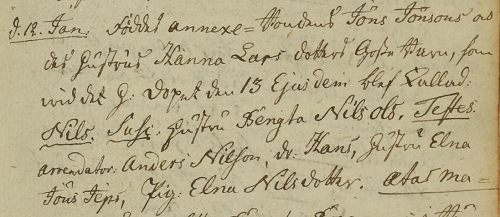 d. 12. Jan: Föddes annexe-Bondens Jöns Jönsons och
des hustrus Hanna Lars dotters Gosse Barn, som
wid det H: Dopet den 13 Ejusdem blef kallad:
Nils. Susc. hustru Bengta Nils Ols. Testes.
arrendator: Anders Nilson, dr: Hans, hustru Elna
Jöns Jeps, Pig: Elna Nilsdotter. ætas ma-